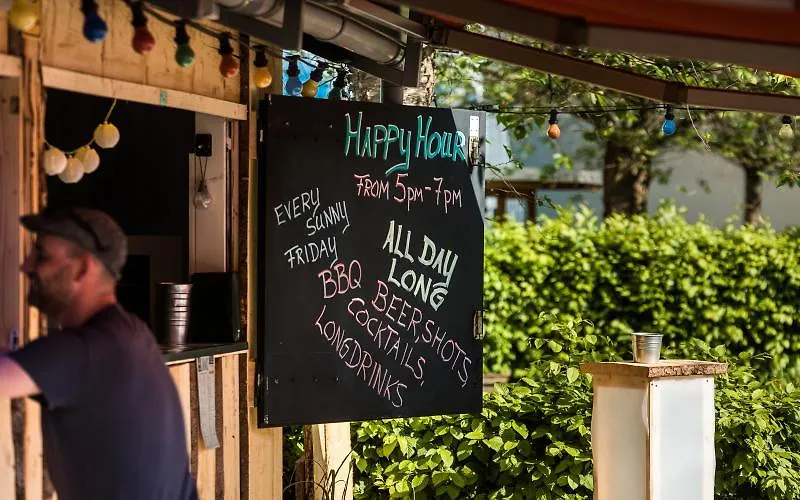 HAPPY HOUR
FROM 5PM-7PM
EVERY
SUNNY
FRIDAY
ALL DAY
LONG
BBQ
BEER, SHOTS,
COCKTAILS,
LONGDRINKS